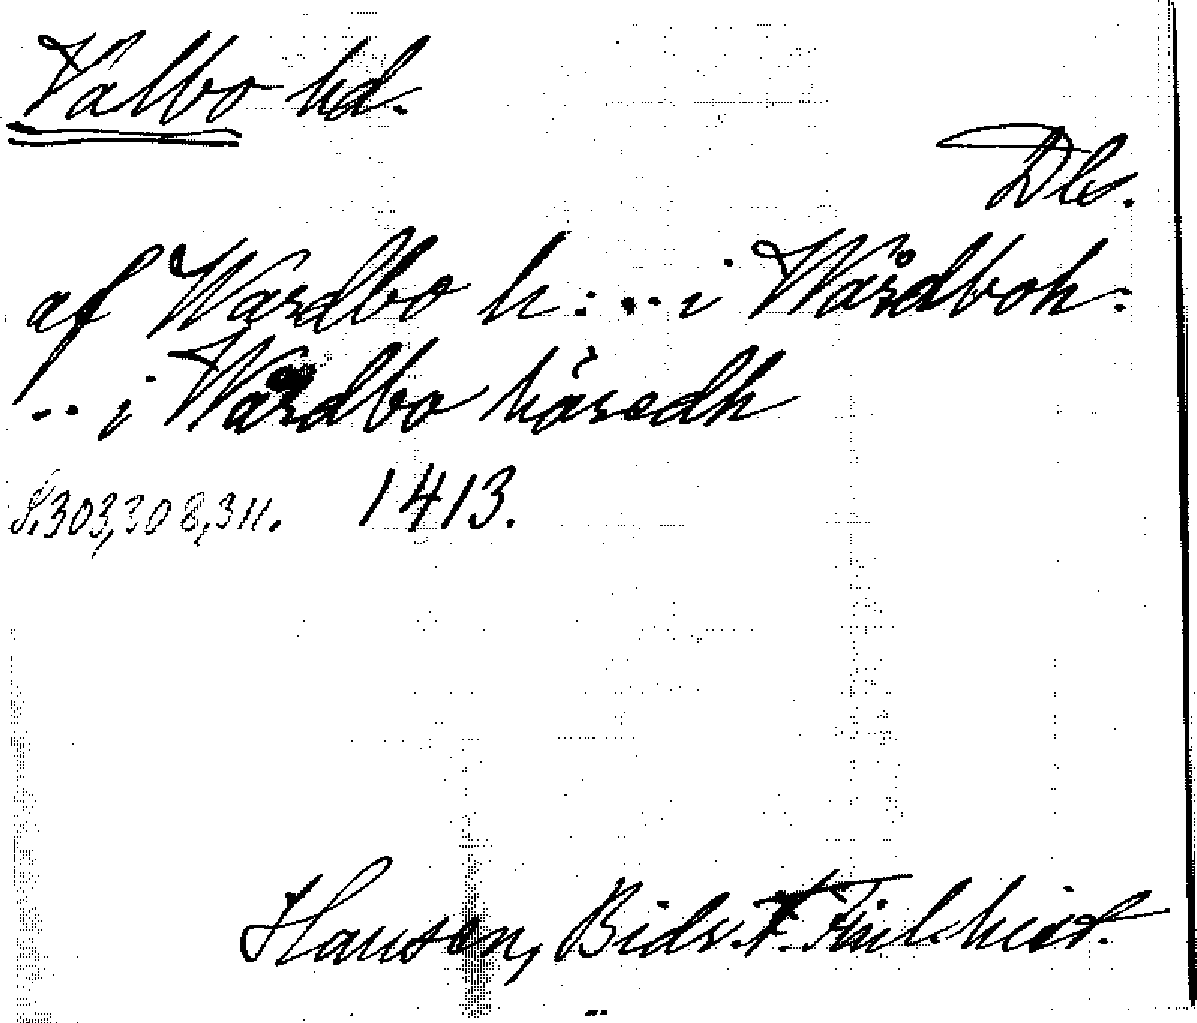 Valbo hd.
Dls.
af Wardbo h: .. i Wårdboh:
.. i Wårdbo häredh
S. 303, 308, 311. 1413.
Hausen, Bidr. t. Finl. hist.